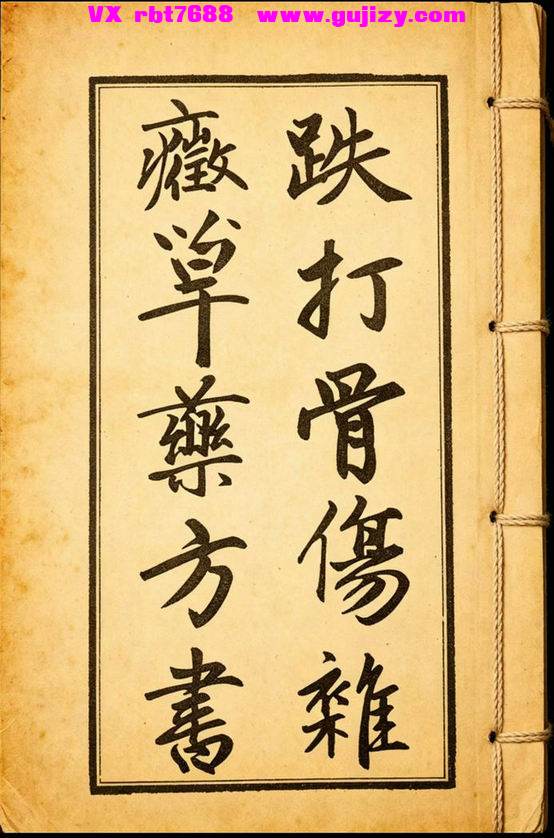 VX rbt7688 www.gujizy.com
跌打骨傷雜
癥草藥方書